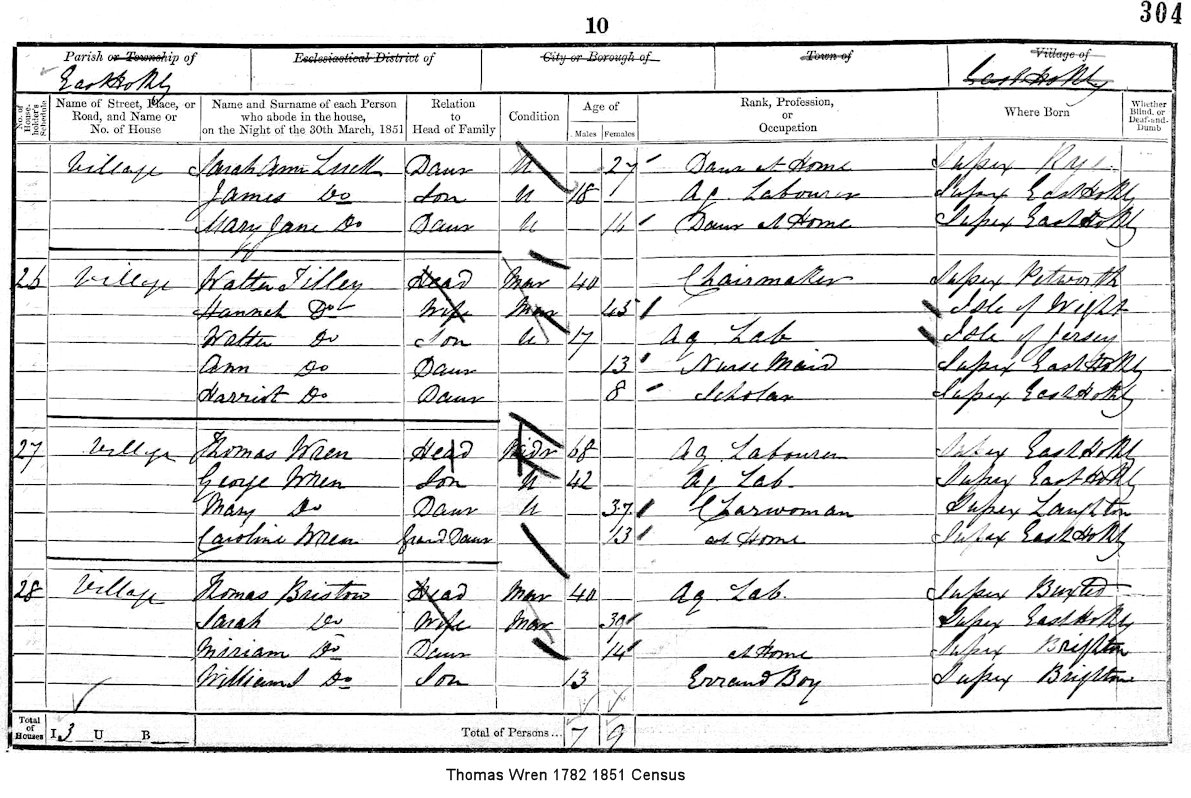 304
10
Parish or Township of Ecclesiastical District of City or Borough of Town of Village of
East Hothly East Hothly
No. of House-holder's Schedule Name of Street, Place, or Road, and Name or No. of House Name and Surname of each Person who abode in the house, on the Night of the 30th March, 1851 Relation to Head of Family Condition Age of Males Females Rank, Profession, or Occupation Where Born Whether Blind, or Deaf-and-Dumb
Village Sarah Ann Luck Daur U 27 Daur at Home Sussex Rye
James Do Son U 18 Ag. Labourer Sussex East Hothly
Mary Jane Do Daur U 16 Daur at Home Sussex East Hothly
26 Village Walter Tilley Head Mar 40 Chairmaker Sussex Petworth
Hannah Do Wife Mar 45 Isle of Wight
Walter Do Son U 17 Ag. Lab Isle of Jersey
Ann Do Daur 13 Nurse Maid Sussex East Hothly
Harriot Do Daur 8 Scholar Sussex East Hothly
27 Village Thomas Wren Head Widr 68 Ag Labourer Sussex East Hothly
George Wren Son U 42 Ag Lab. Sussex East Hothly
Mary Do Daur U 37 Charwoman Sussex Laughton
Caroline Wren Grand Daur 13 at Home Sussex East Hothly
28 Village Thomas Bristow Head Mar 40 Ag Lab. Sussex Buxted
Sarah Do Wife Mar 39 Sussex East Hothly
Miriam Do Daur 14 at Home Sussex Brighton
William Do Son 13 Errand Boy Sussex Brighton
Total of Houses I 3 U B Total of Persons... 7 9
Thomas Wren 1782 1851 Census